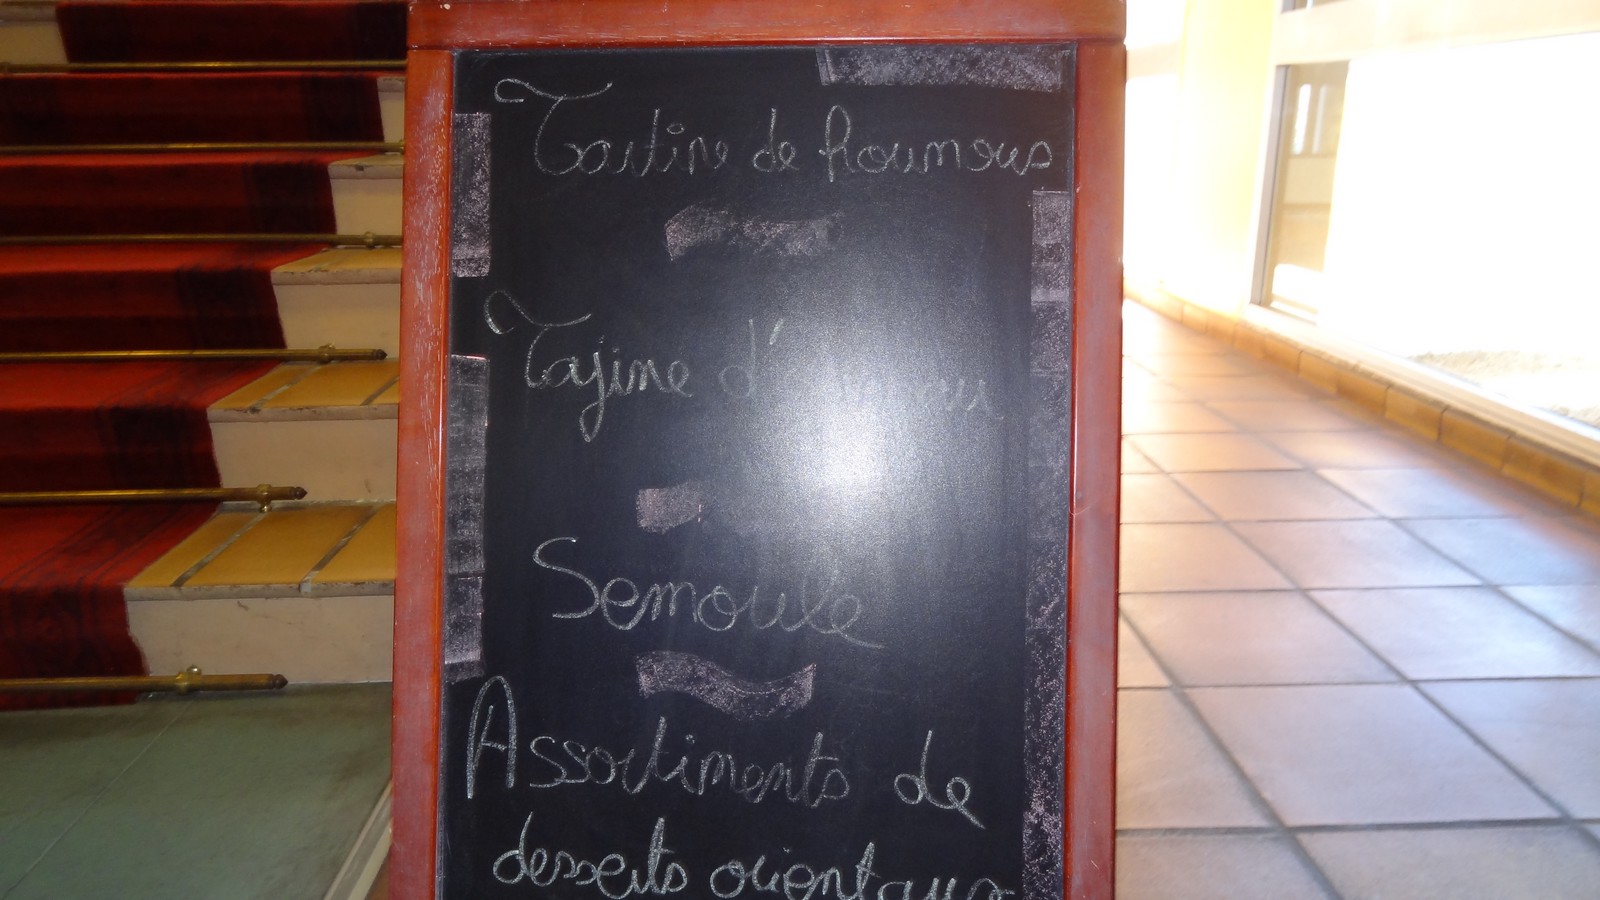 Tartine de houmous
Tajine d'agneau
Semoule
Assortiments de
desserts orientaux